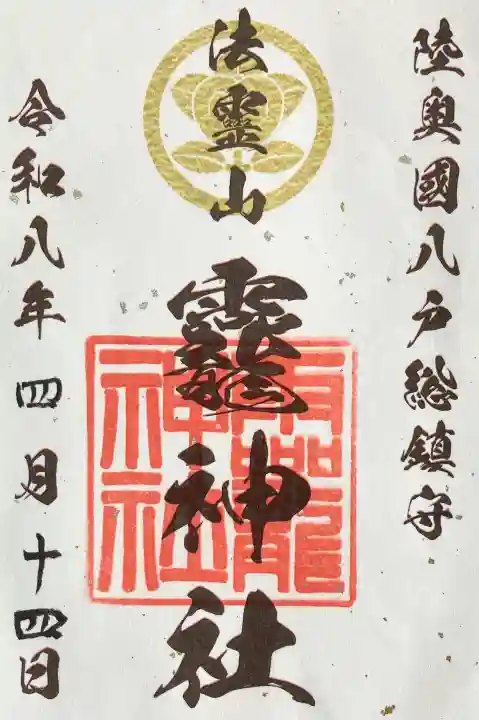 陸奥國八戸總鎮守
法靈山
龗神社
龗神社
令和八年四月十四日